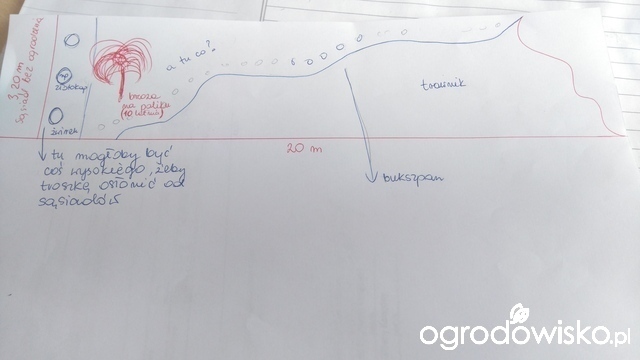 3,20 m
sąsiad bez ogrodzenia
złotokap
świerk
a tu co?
brzoza
na paliku
(10 letnia)
trawnik
20 m
bukszpan
tu mogłoby być
coś wysokiego, żeby
troszkę osłonić od
sąsiadów
ogrodowisko.pl